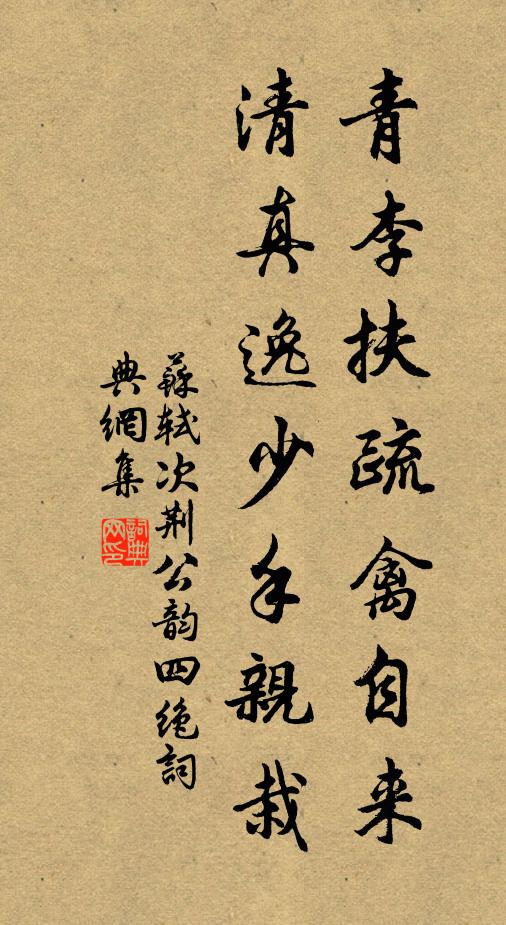 青李扶疏禽自来
清真逸少手親栽
蘇軾次荆公韵四绝詞
典網集
詞典网印